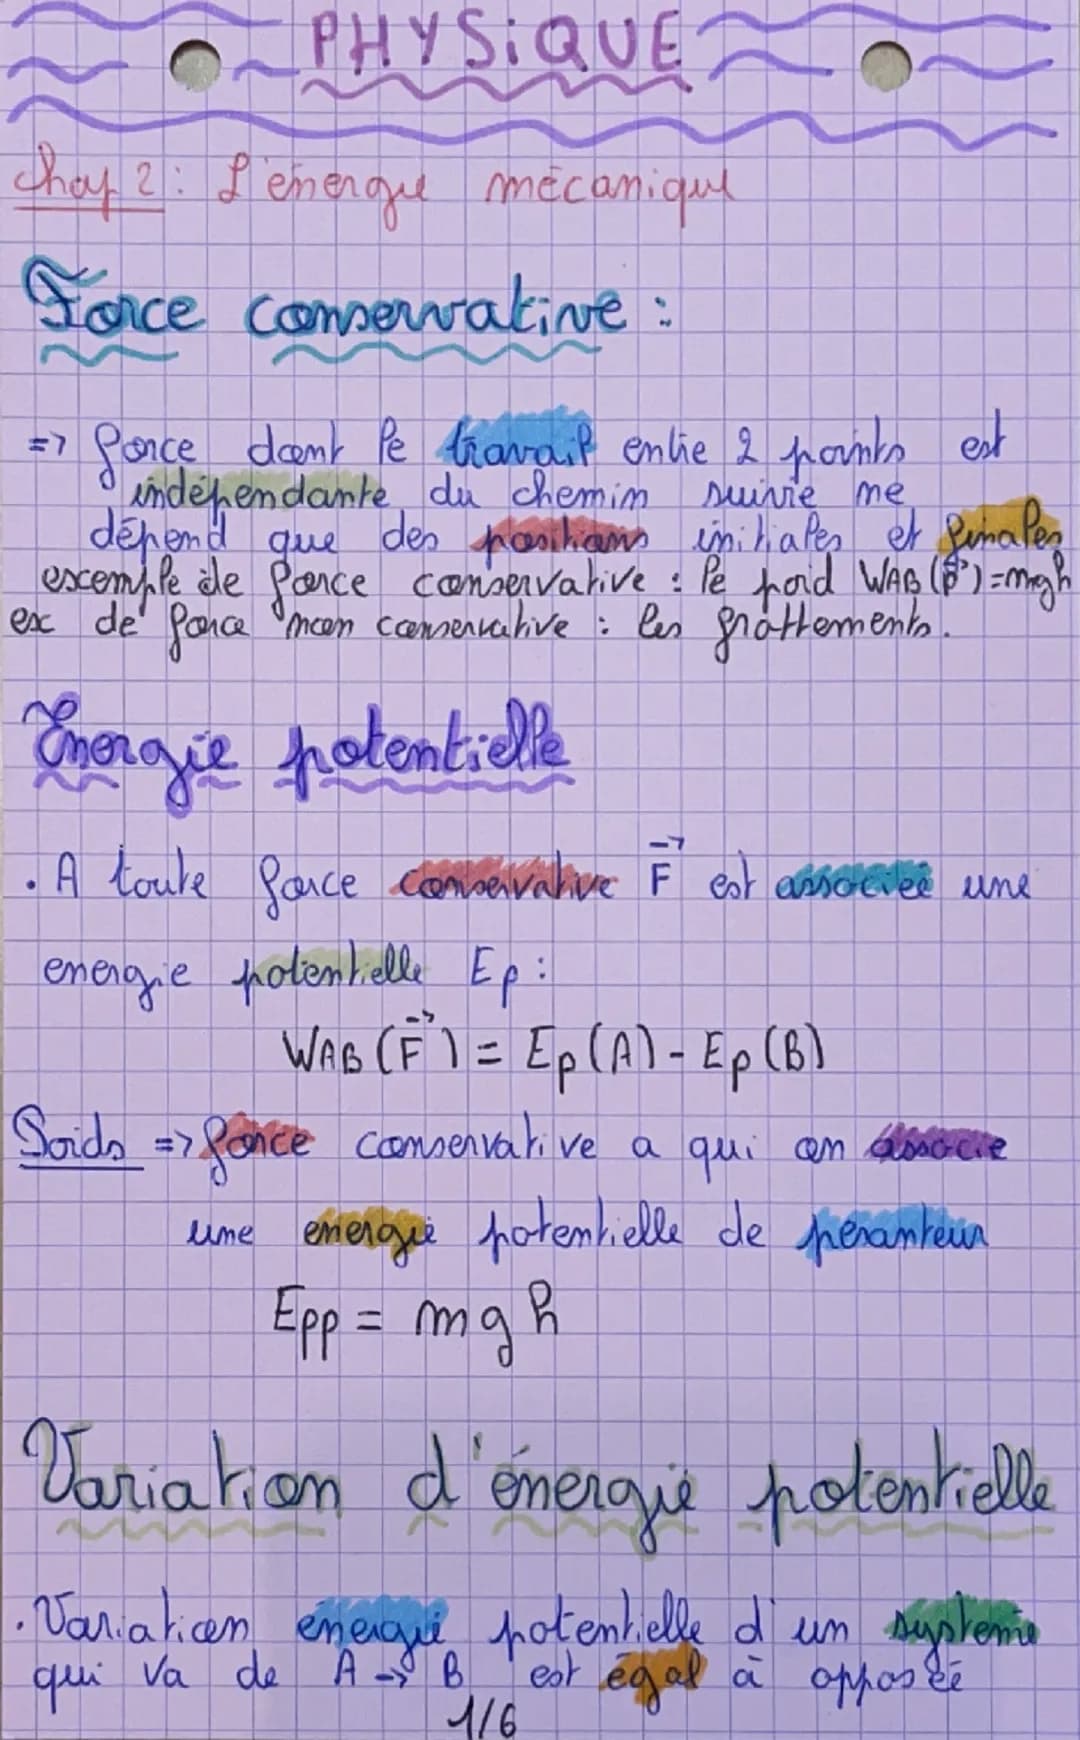 PHYSiQUE
Chap 2 : L'énergie mécanique
Force conservative :
=> force dont le travail entre 2 points est
indépendante du chemin suivie ne
dépend que des positions initiales et finales
exemple de force conservative : le poid WAB (P→) = mgh
ex de force non conservative : les frottements.
Énergie potentielle
. A toute force conservative F→ est associée une
energie potentielle Ep :
WAB (F→) = Ep (A) - Ep (B)
Poids => force conservative a qui on associe
une energie potentielle de pesanteur
Epp = mgh
Variation d'énergie potentielle
. Variation énergie potentielle d'un systeme
qui va de A -> B est égal à opposée
1/6